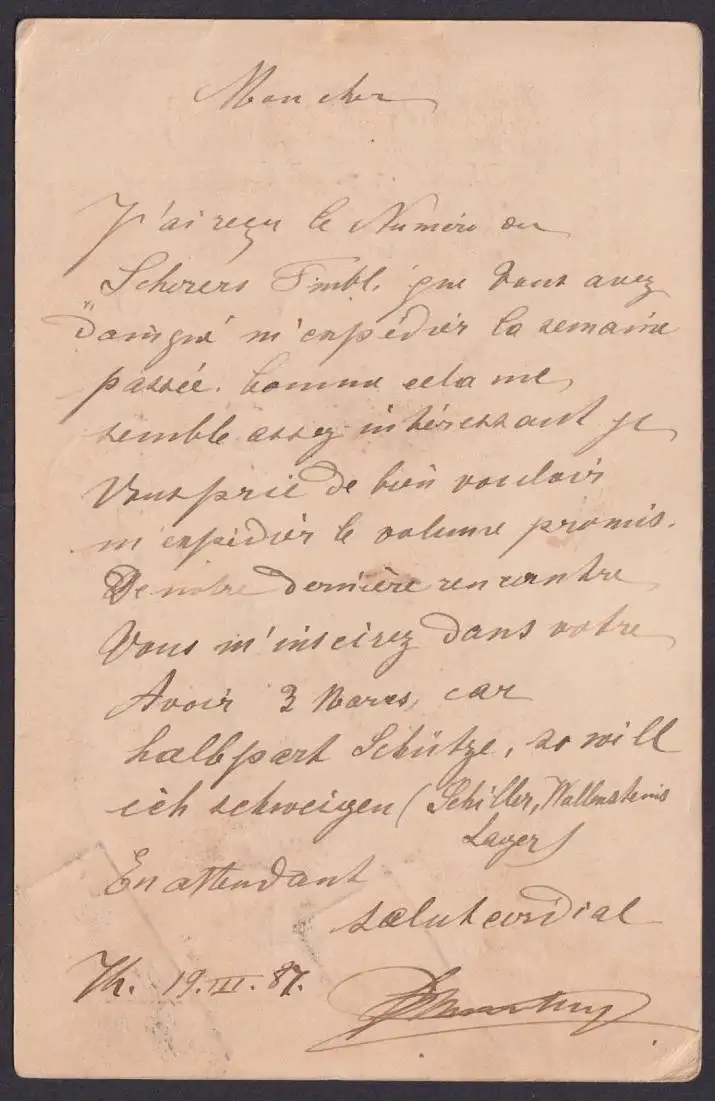 Mon cher
J'ai reçu le Numéro du
Scherers Fmbl. que Vous avez
daîgné m'expédier la semaine
passée. Comme cela me
semble assez intéressant je
Vous prie de bien vouloir
m'expédier le volume promis.
De notre dernière rencontre
Vous m'inscirez dans votre
Avoir 3 Marcs, car
halbpart Schütze, so will
ich schweigen (Schiller, Wallensteins
Lager)
En attendant
salut cordial
Th. 19. III. 87.